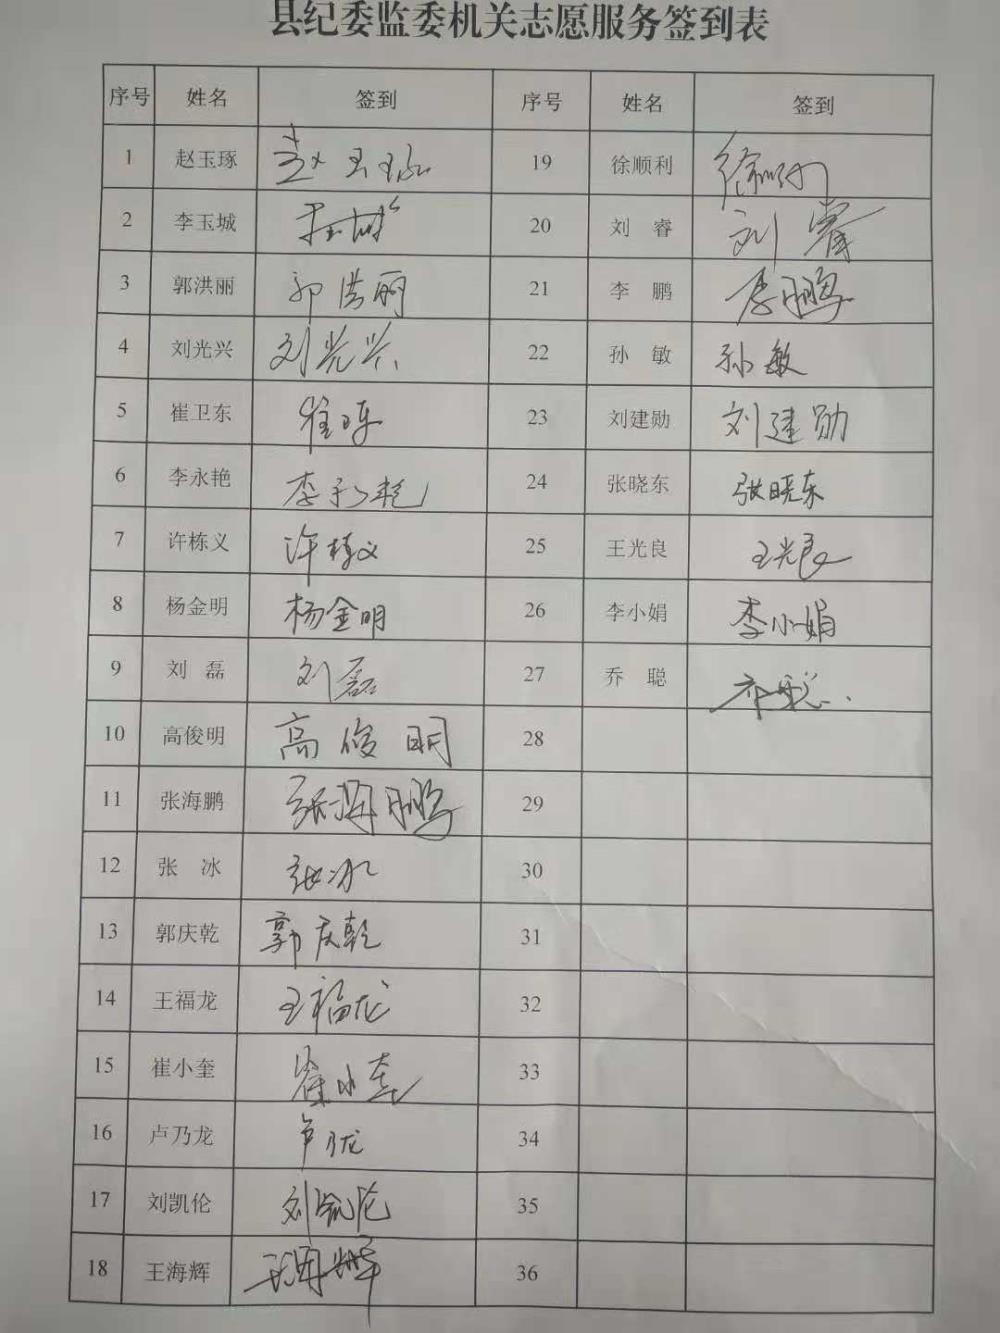 县纪委监委机关志愿服务签到表
序号 姓名 签到 序号 姓名 签到
1 赵玉琢 赵玉琢 19 徐顺利 徐顺利
2 李玉城 李玉城 20 刘睿 刘睿
3 郭洪丽 郭洪丽 21 李鹏 李鹏
4 刘光兴 刘光兴 22 孙敏 孙敏
5 崔卫东 崔卫东 23 刘建勋 刘建勋
6 李永艳 李永艳 24 张晓东 张晓东
7 许栋义 许栋义 25 王光良 王光良
8 杨金明 杨金明 26 李小娟 李小娟
9 刘磊 刘磊 27 乔聪 乔聪
10 高俊明 高俊明 28
11 张海鹏 张海鹏 29
12 张冰 张冰 30
13 郭庆乾 郭庆乾 31
14 王福龙 王福龙 32
15 崔小奎 崔小奎 33
16 卢乃龙 卢乃龙 34
17 刘凯伦 刘凯伦 35
18 王海辉 王海辉 36